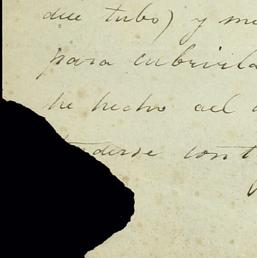 due tubo) y me
para cubrirla
he hecho del
derse con t